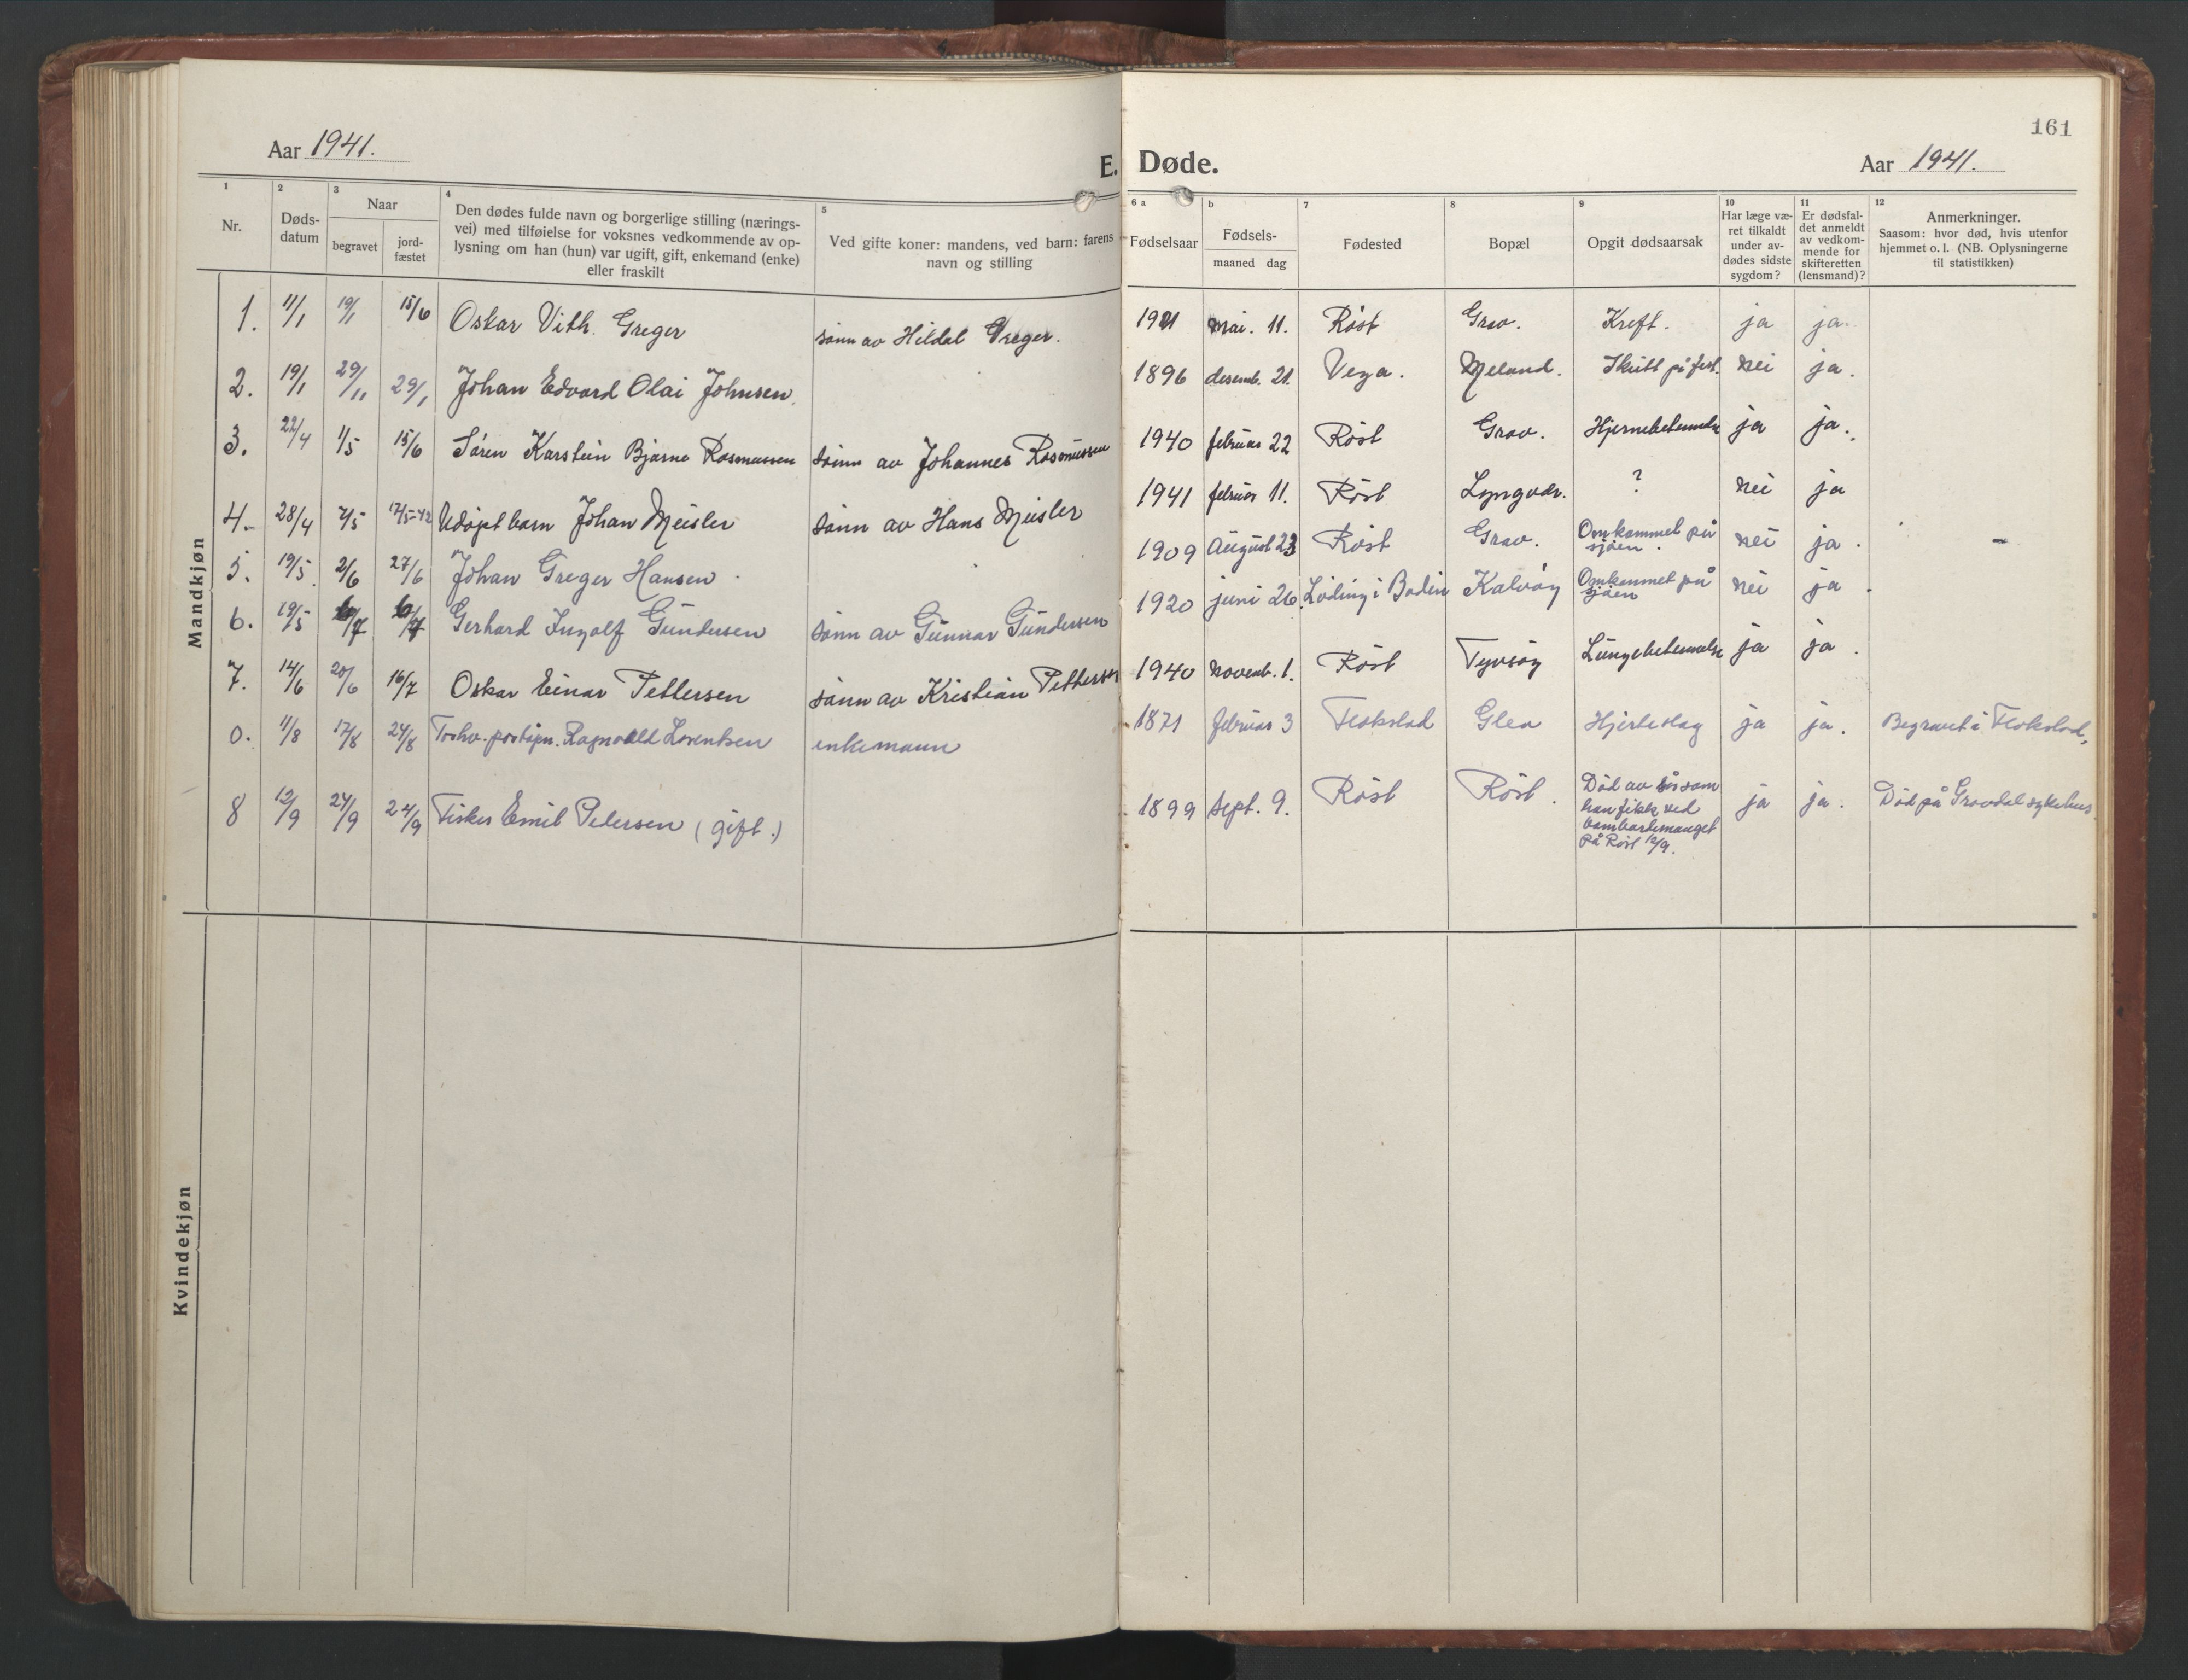 161
Aar 1941.
E. Døde.
Aar 1941.
1 2 3 4 5 6 a b 7 8 9 10 11 12
Nr.
Døds-
datum
Naar
begravet
jord-
fæstet
Den dødes fulde navn og borgerlige stilling (nærings-
vei) med tilføielse for voksnes vedkommende av op-
lysning om han (hun) var ugift, gift, enkemand (enke)
eller fraskilt
Ved gifte koner: mandens, ved barn: farens
navn og stilling
Fødselsaar
Fødsels-
maaned dag
Fødested
Bopæl
Opgit dødsaarsak
Har læge væ-
ret tilkaldt
under av-
dødes sidste
sygdom?
Er dødsfal-
det anmeldt
av vedkom-
mende for
skifteretten
(lensmand)?
Anmerkninger.
Saasom: hvor død, hvis utenfor
hjemmet o. l. (NB. Oplysningerne
til statistikken)
Mandkjøn
1. 11/1 19/1 15/6 Oskar Vith. Greger sønn av Hildal Greger. 1921 mai. 11. Röst Grav. Kreft. ja ja.
2. 19/1 29/11 29/1 Johan Edvard Olai Johnsen. 1896 desemb. 21. Vega. Meland. Skutt på fest. nei ja.
3. 22/4 1/5 15/6 Sören Karstein Bjarne Rasmussen sönn av Johannes Rasmussen 1940 februar 22 Röst Grav. Hjernebetennelse ja ja.
4. 28/4 7/5 17/5-42 Udöpt barn Johan Meisler sönn av Hans Meisler 1941 februar 11. Röst Lyngvær. ? nei ja
5. 19/5 2/6 27/6 Johan Greger Hansen 1909 August 23 Röst Grav. Omkommet på
sjöen. nei ja.
6. 19/5 6/7 6/7 Gerhard Ingolf Gundersen sönn av Gunnar Gundersen 1920 juni 26. Löding i Bodin Kalvöy Omkommet på
sjöen nei ja.
7. 14/6 20/6 16/7 Oskar Einar Pettersen sönn av Kristian Pettersen 1940 novemb. 1. Röst Tyvsöy Lungebetennelse ja ja.
0. 11/8 17/8 24/8 postepn. Ragnvald Lorentsen enkemann 1871 februar 3 Flakstad Glea Hjerteslag ja ja. Begravet i Flakstad,
8 12/9 24/9 24/9 Fisker Emil Pedersen (gift.) 1899 sept. 9. Röst Röst. Död av sår som
han fikk ved
bombardemanget
på Röst 12/9. ja ja. Död på Gravdal sykehus.
Kvindekjøn